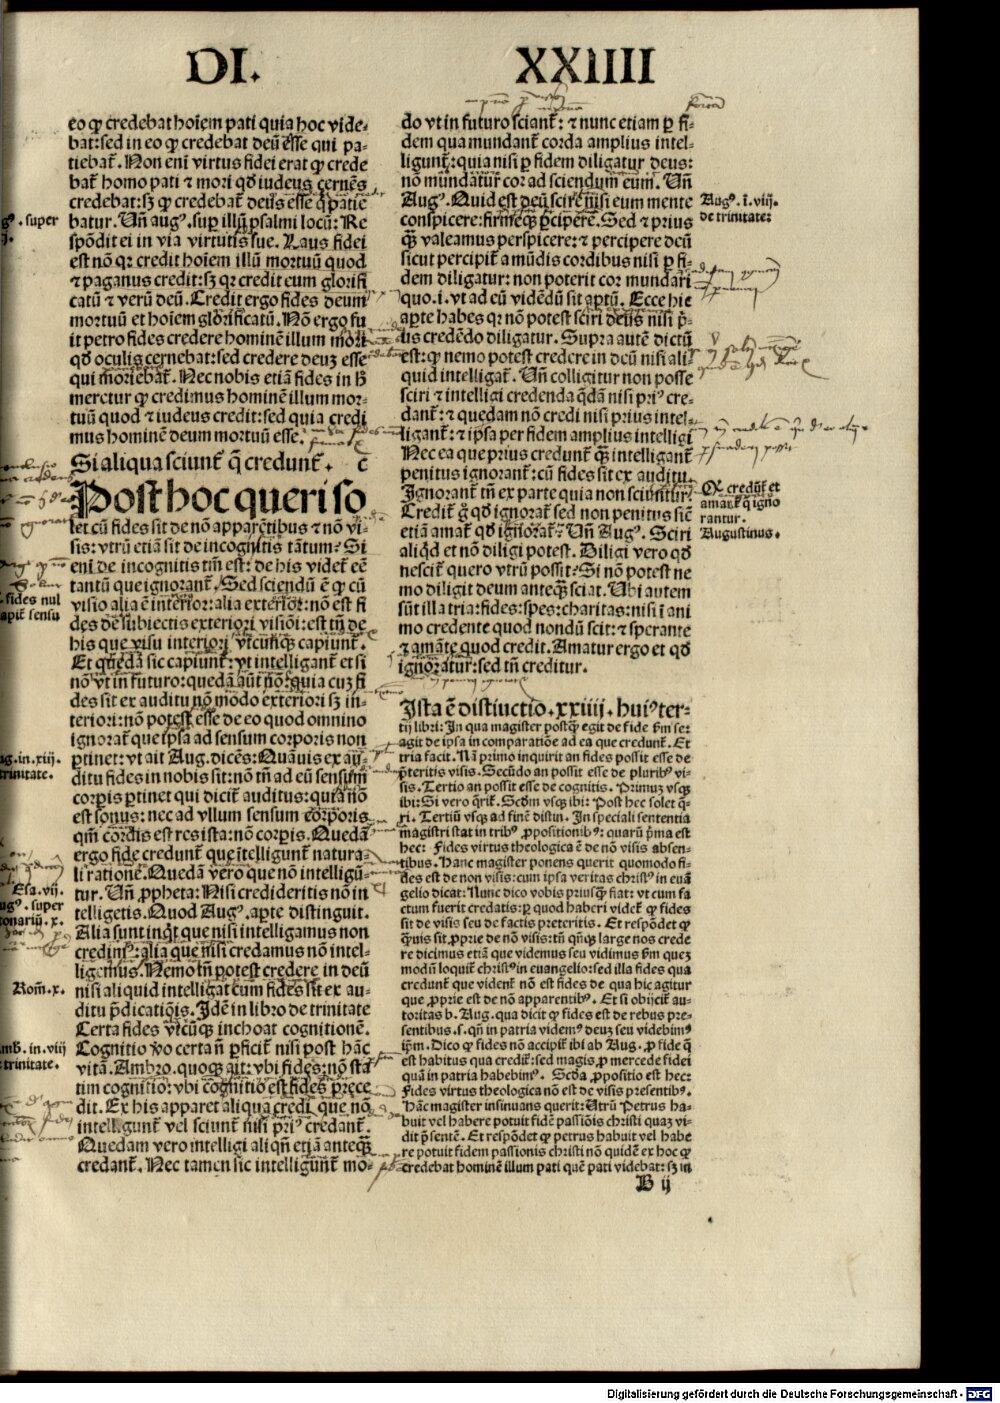 DI. XXIIII
eo ꝙ credebat hoīem pati quia hoc vide-
bat: sed in eo ꝙ credebat deū esse qui pa-
tiebat᷑. Non eni virtus fidei erat ꝙ crede
bat᷑ homo pati ⁊ mori qḋ iudeus cernēs
credebat: sꝫ ꝙ credebat deus esse q̇ patie
batur. Vn̄ augꝰ. suꝑ illū psalmi locū: Re
spōdit ei in via virtutis sue. Laus fidei
est nō qꝛ credit hoīem illū mortuū quod
⁊ paganus credit: sꝫ qꝛ credit eum glorifi
catū ⁊ verū deū. Credit ergo fides deum
mortuū et hoīem glorificatū. Nō ergo fu
it petro fides credere hominē illum mori
qḋ oculis cernebat: sed credere deuꝫ esse
qui moriebat᷑. Nec nobis etiā fides in h̄
meretur ꝙ credimus hominē illum mor-
tuū quod ⁊ iudeus credit: sed quia credi
mus hominē deum mortuū esse.
Si aliqua sciunt᷑ q̄ credunt᷑. c̄
Post hoc queri so
let cū fides sit de nō apparētibus ⁊ nō vi-
sis: vtrū etiā sit de incognitis tātum? Si
eni de incognitis tm̄ est: de his videt᷑ eē
tantū que ignorant᷑. Sed sciendū ē ꝙ cū
visio alia ē interior: alia exterior: nō est fi
des de subiectis exteriori visiōi: est tn̄ de
his que visu interiori vtcūqꝫ capiunt᷑.
Et quedā sic capiunt᷑: vt intelligant᷑ et si
nō vt in futuro: quedā aūt nō: quia cuꝫ fi
des sit ex auditu nō modo exteriori sꝫ in-
teriori: nō potest esse de eo quod omnino
ignorat᷑ que ipsa ad sensum corporis non
ꝑtinet: vt ait Aug. dicēs: Quāuis ex au
ditu fides in nobis sit: nō tn̄ ad eū sensum
corꝑis ꝑtinet qui dicit᷑ auditus: quia nō
est sonus: nec ad vllum sensum corporis
qm̄ cordis est res ista: nō corꝑis. Quedā
ergo fide credunt᷑ que ītelligunt᷑ natura-
li ratione. Quedā vero que nō intelligū-
tur. Vn̄ ꝓpheta: Nisi credideritis nō in
telligetis. Quod Augꝰ. aꝑte distinguit.
Alia sunt inqͥt que nisi intelligamus non
credimꝰ: alia que nisi credamus nō intel-
ligemus. Nemo tn̄ potest credere in deū
nisi aliquid intelligat cum fides sit ex au-
ditu p̄dicatiōis. Idē in libro de trinitate
Certa fides vtcūqꝫ inchoat cognitionē.
Cognitio ỽo certa nō ꝑficit᷑ nisi post hāc
vitā. Ambro. quoqꝫ ait: vbi fides: nō sta
tim cognitio: vbi cognitio est fides p̄rece
dit. Ex his apparet aliqua credi que nō
intelligunt᷑ vel sciunt᷑ nisi priꝰ credant᷑.
Quedam vero intelligi aliqn̄ etiā anteqꝫ
credant᷑. Nec tamen sic intelligunt᷑ mo-
gꝰ. super
fides nul
apit sensu
ug. in. xiij.
trinitate.
Esa. vij.
ugꝰ. super
tonariū. x.
Rom̄. x.
mb. in. viij
trinitate.
do vt in futuro sciant᷑: ⁊ nunc etiam ꝑ fi-
dem qua mundant᷑ corda amplius intel-
ligunt᷑: quia nisi ꝑ fidem diligatur deus:
nō mundatur cor ad sciendum eum. Vn̄
Augꝰ. Quid est deū scire nisi eum mente
conspicere: firmeqꝫ ꝑcipere. Sed ⁊ prius
qꝫ valeamus perspicere: ⁊ percipere deū
sicut percipit᷑ a mūdis cordibus nisi ꝑ fi-
dem diligatur: non poterit cor mundari
quo. i. vt ad eū vidēdū sit aptū. Ecce hic
aꝑte habes qꝛ nō potest sciri deus nisi p̄-
us credēdo diligatur. Supra autē dictū
est: ꝙ nemo potest credere in deū nisi ali
quid intelligat. Vn̄ colligitur non posse
sciri ⁊ intelligi credenda qḋā nisi priꝰ cre-
dant᷑: ⁊ quedam nō credi nisi prius intel-
ligant᷑: ⁊ ipsa per fidem amplius intelligi
Nec ea que prius credunt᷑ qꝫ intelligant᷑
penitus ignorant᷑: cū fides sit ex auditu.
Ignorant᷑ tn̄ ex parte quia non sciuntur.
Credit᷑ g̊ qḋ ignorat᷑ sed non penitus sic̄
etiā amat᷑ qḋ ignorat᷑. Vn̄ Augꝰ. Sciri
aliqḋ et nō diligi potest. Diligi vero qḋ
nescit᷑ quero vtrū possit? Si nō potest ne
mo diligit deum anteqꝫ sciat. Vbi autem
sūt illa tria: fides: spes: charitas: nisi ī ani
mo credente quod nondū scit: ⁊ sperante
⁊ amāte quod credit. Amatur ergo et qḋ
ignoratur: sed tn̄ creditur.
Augꝰ. ī. viij.
de trinitate:
Qꝛ credūt᷑ et
amāt᷑ q̄ igno
rantur.
Augustinus.
Ista ē distinctio. xxiiij. huiꝰ ter-
tij libri: In qua magister postqꝫ egit de fide h̄m se:
agit de ipsa in comparatiōe ad ea que credunt᷑. Et
tria facit. Nā primo inquirit an fides possit esse de
p̄teritis visis. Secūdo an possit esse de pluribꝰ vi-
sis. Tertio an possit esse de cognitis. Primuꝫ vsqꝫ
ibi: Si vero q̄rit᷑. Scḋm vsqꝫ ibi: Post hec solet q̄-
ri. Tertiū vsqꝫ ad finē distin. In speciali sententia
magistri stat in tribꝰ ꝓpositionibꝰ: quarū p̄ma est
hec: Fides virtus theologica ē de nō visis absen-
tibus. Hanc magister ponens querit quomodo fi-
des est de non visis: cum ipsa veritas christꝰ in euā
gelio dicat: Nunc dico vobis priusqꝫ fiat: vt cum fa
ctum fuerit credatis: ꝑ quod haberi videt᷑ ꝙ fides
sit de visis seu de factis preteritis. Et respōdet ꝙ
qͣuis sit ꝓprie de nō visis: tn̄ qn̄qꝫ large nos crede
re dicimus etiā que videmus seu vidimus h̄m queꝫ
modū loquit᷑ christꝰ in euangelio: sed illa fides qua
credunt᷑ que vident᷑ nō est fides de qua hic agitur
que ꝓprie est de nō apparentibꝰ. Et si obijcit᷑ au-
toritas b. Aug. qua dicit ꝙ fides est de rebus pre-
sentibus. s. qn̄ in patria videmꝰ deuꝫ seu videbimꝰ
ip̄m. Dico ꝙ fides nō accipit᷑ ibi ab Aug. ꝓ fide q̄
est habitus qua credit᷑: sed magis ꝓ mercede fidei
quā in patria habebimꝰ. Scḋa ꝓpositio est hec:
Fides virtus theologica nō est de visis presentibꝰ.
Hāc magister insinuans querit: Vtrū Petrus ha-
buit vel habere potuit fidē passiōis christi quaꝫ vi-
dit p̄sentē. Et respōdet ꝙ petrus habuit vel habe
re potuit fidem passionis christi nō quidē ex hoc ꝙ
credebat hominē illum pati quē pati videbat: sꝫ in
B ij
Digitalisierung gefördert durch die Deutsche Forschungsgemeinschaft - DFG